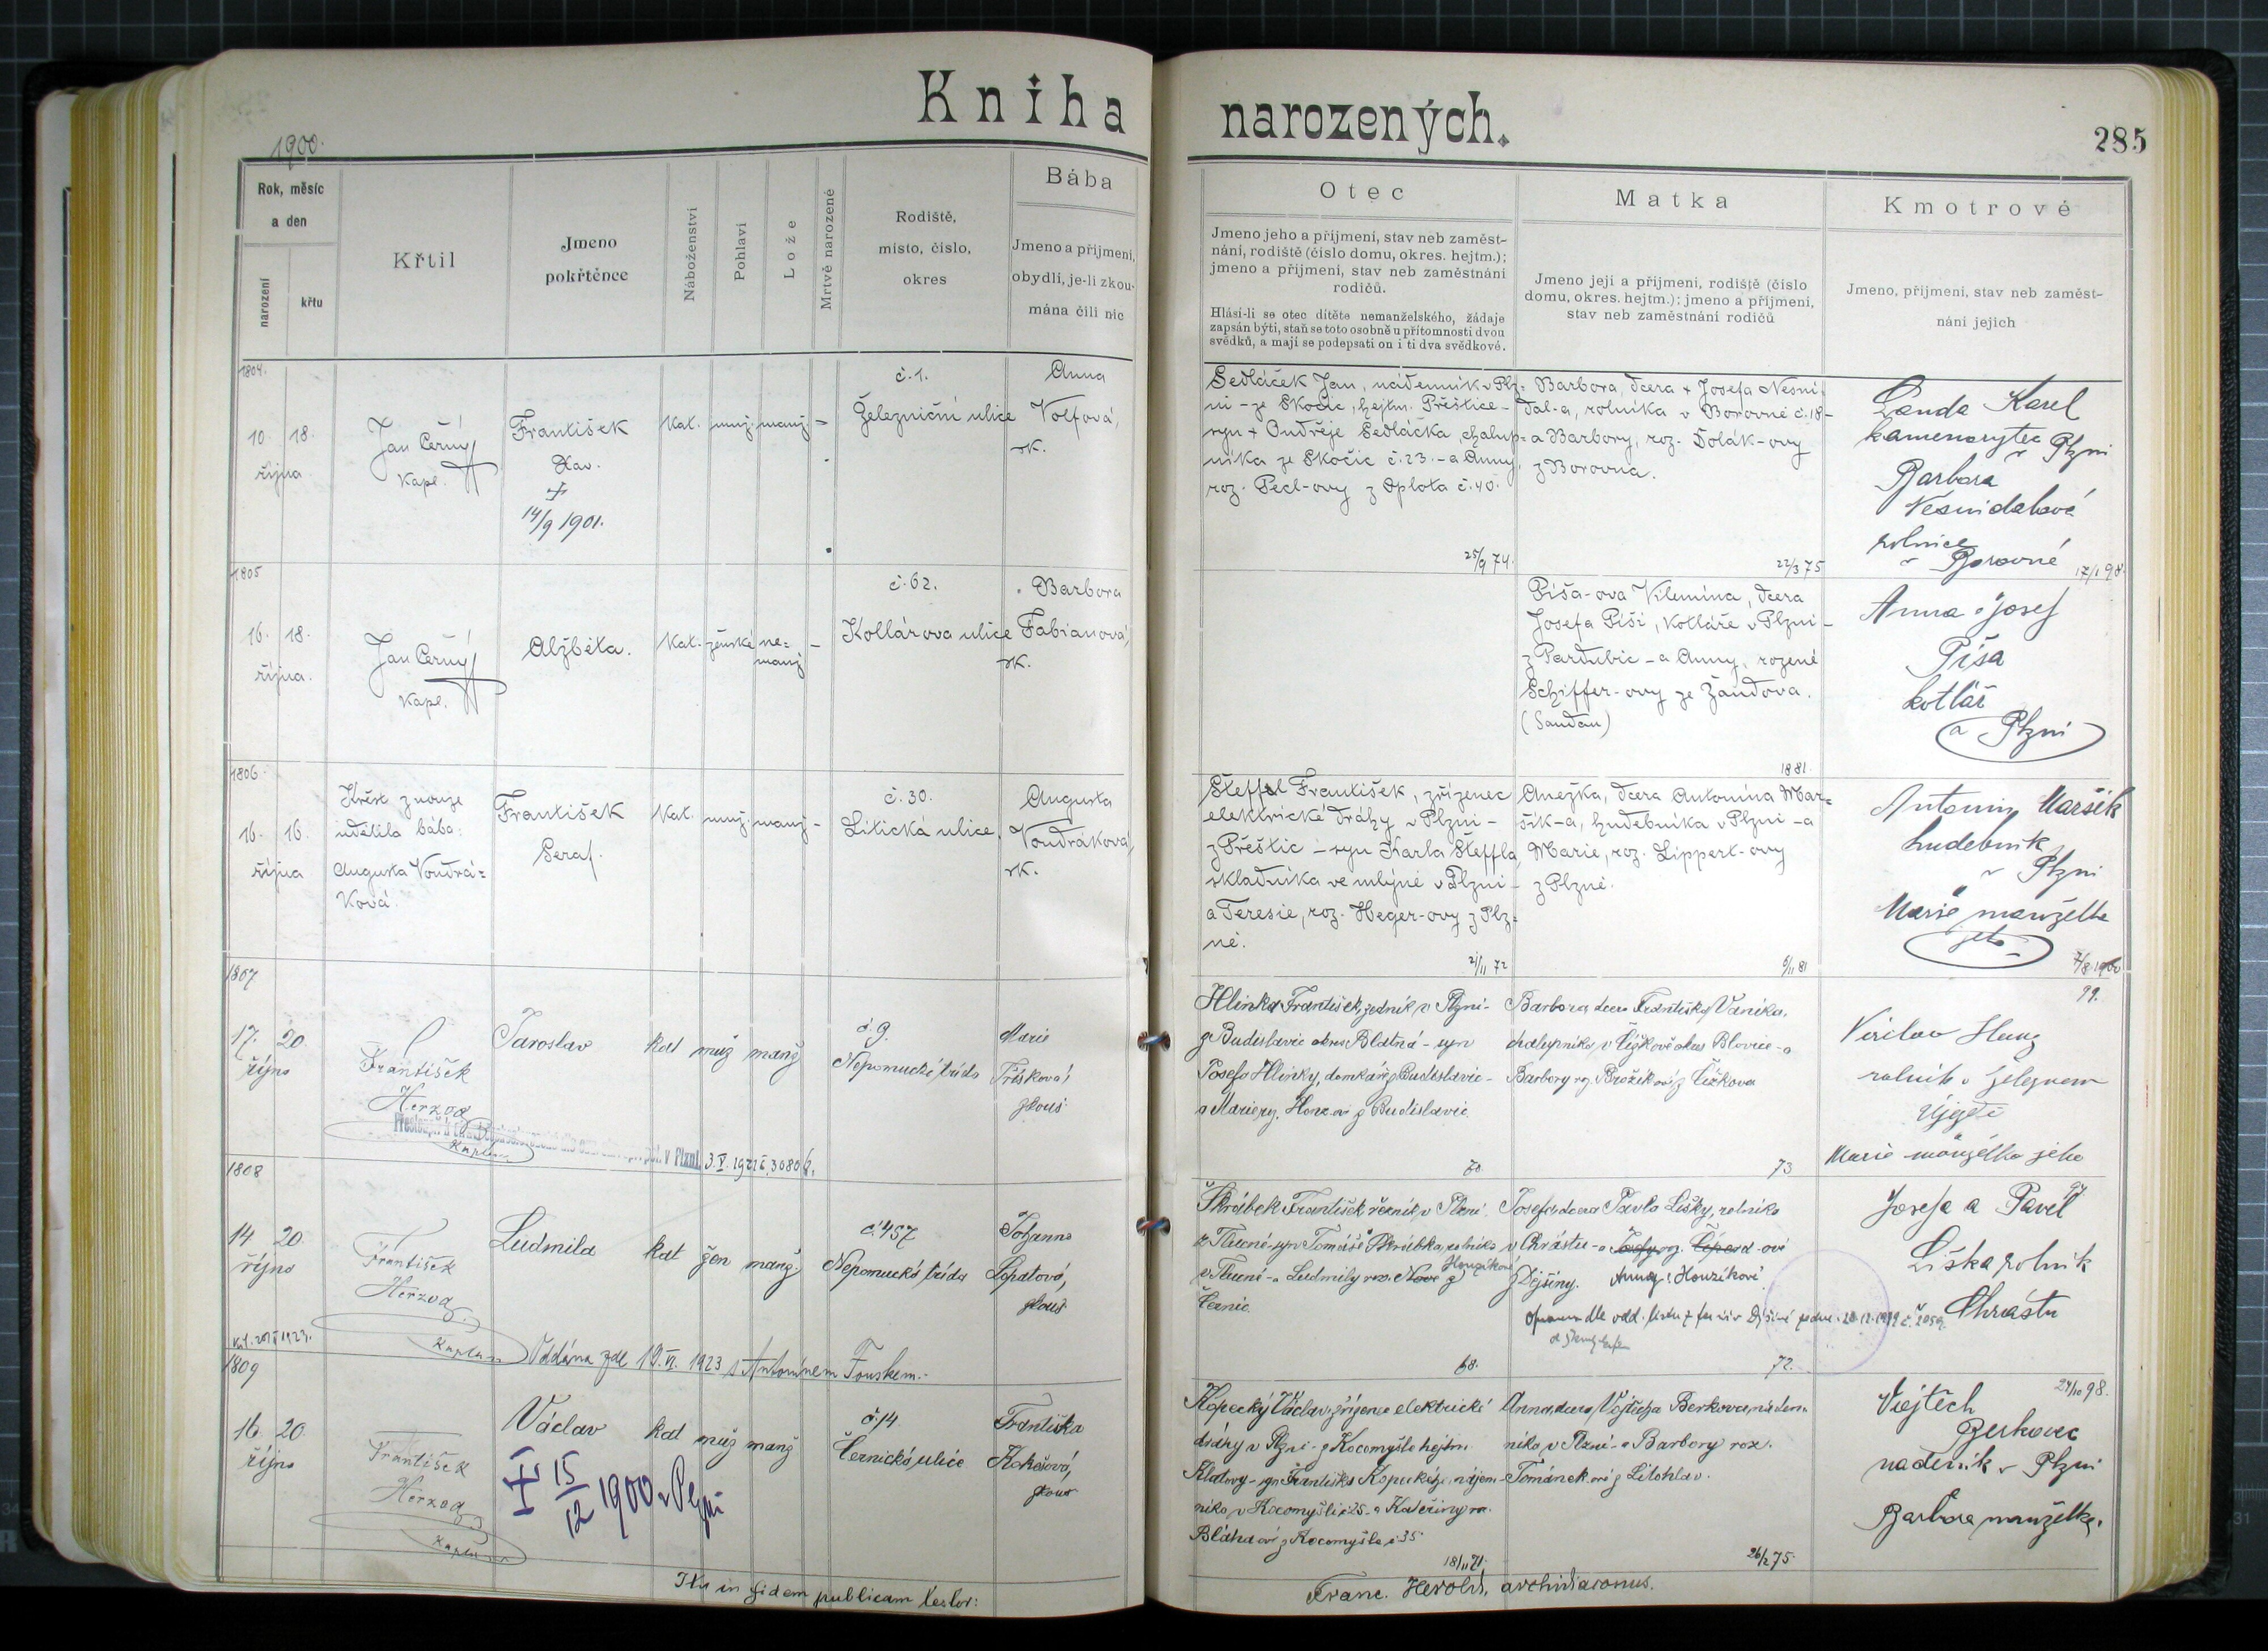 Kniha narozených.
285
1900.
Rok, měsíc
a den
narození
křtu
Křtil
Jmeno
pokřtěnce
Náboženství
Pohlaví
Lože
Mrtvě narozené
Rodiště,
místo, číslo,
okres
Bába
Jmeno a příjmení,
obydlí, je-li zkou-
mána čili nic
Otec
Jmeno jeho a příjmení, stav neb zaměst-
nání, rodiště (číslo domu, okres. hejtm.);
jmeno a příjmení, stav neb zaměstnání
rodičů.
Hlásí-li se otec dítěte nemanželského, žádaje
zapsán býti, staň se toto osobně u přítomnosti dvou
svědků, a mají se podepsati on i ti dva svědkové.
Matka
Jmeno její a příjmení, rodiště (číslo
domu, okres. hejtm.); jmeno a příjmení,
stav neb zaměstnání rodičů
Kmotrové
Jmeno, příjmení, stav neb zaměst-
nání jejich
1804.
10. 18.
října
Jan Černý
kapl.
František
Xav.
+
14/9 1901.
Kat. muž. manž. -
č. 1.
Železniční ulice
Anna
Volfová,
zk.
Sedláček Jan, nádenník v Plz=
ni - ze Skočic, hejtm. Přeštice -
syn + Ondřeje Sedláčka, chalup=
níka ze Skočic č. 23. - a Anny,
roz. Pecl-ovy z Oplota č. 40.
25/9 74.
Barbora, dcera + Josefa Nesni=
dal-a, rolníka v Borovně č. 18 -
a Barbory, roz. Dolák-ovy
z Borovna.
22/3 75
Landa Karel
kamenorytec v Plzni
Barbora
Nesnidalová
rolnice
v Borovně
17/1 98.
1805
16. 18.
října.
Jan Černý
kapl.
Alžběta.
Kat. ženské ne=
manž. -
č. 62.
Kollárova ulice
Barbora
Fabianová,
zk.
Píša-ova Vilemína, dcera
Josefa Píši, kotláře v Plzni -
z Pardubic - a Anny, rozené
Schiffer-ovy ze Žandova.
(Sandau)
1881.
Anna a Josef
Píša
kotlář
a Plzni
1806.
16. 16.
října
Křest z nouze
udělila bába:
Augusta Voudrá=
ková.
František
Seraf.
Kat. muž. manž. -
č. 30.
Litická ulice.
Augusta
Voudráková,
zk.
Šteffel František, zřízenec
elektrické dráhy v Plzni -
z Přeštic - syn Karla Šteffla,
skladníka ve mlýně v Plzni -
a Teresie, roz. Heger-ovy z Plz=
ně.
21/11 72
Anežka, dcera Antonína Mar=
šík-a, hudebníka v Plzni - a
Marie, roz. Lippert-ovy
z Plzně.
6/11 81
Antonín Maršík
hudebník
v Plzni
Marie manželka
jeho
1807
17. 20.
října
František
Herzog
Kaplan
Jaroslav
kat muž manž
č. 9.
Nepomucká třída
Marie
Tříšková,
zkouš.
v Plzni. 3. V. 1921 č. 3080
Hlinka František, zedník v Plzni -
z Budislavic okres Blatná - syn
Josefa Hlinky, domkáře z Budislavic -
a Marie rz. Honz-ovi z Budislavic.
70.
Barbora, dcera Františka Vaníka,
chalupníka v Čížkově okres Blovice - a
Barbory rz. Brožík ové z Čížkova
73
99.
rolník v Železném
Újezdě
Marie manželka jeho
1808
14 20.
října
František
Herzog
Kaplan
Ludmila
kat žen manž
č. 457
Nepomucká třída
Johanna
Lopatová,
zkouš.
Oddána zde 19. VI. 1923 s Antonínem Touškem.-
Škrábek František řezník v Plzni
z Tlucné - syn Tomáše Škrábka, rolníka
v Tlucné - a Ludmily roz. Nové z
Černic.
68.
Josefa dcera Pavla Lišky, rolníka
v Chrástu - a
z Dýšiny. Anny: Houzíkové
72.
Josefa a Pavel
Liška rolník
Chrástu
1809
16. 20.
října
František
Herzog
Kaplan
Václav
+ 15/12 1900 v Plzni
kat muž manž
č. 14
Černická ulice
Františka
Kokešová,
zkouš
Kopecký Václav, zřízenec elektrické
dráhy v Plzni - z Kocomyšle hejtm.
Klatovy - syn Františka Kopeckého, nájem-
níka v Kocomyšli č 25 - a Kateřiny rz.
Bláha ové z Kocomyšle č 35
18/11 71.
Anna, dcera Vojtěcha Berkovce, náden-
níka v Plzni - a Barbory roz.
Tománek ové z Litohlav.
26/2 75.
24/10 98.
Vojtěch
Berkovec
nadeník v Plzni
Barbora manželka.
Ita in fidem publicam testor:
Franc. Herold, archidiaconus.